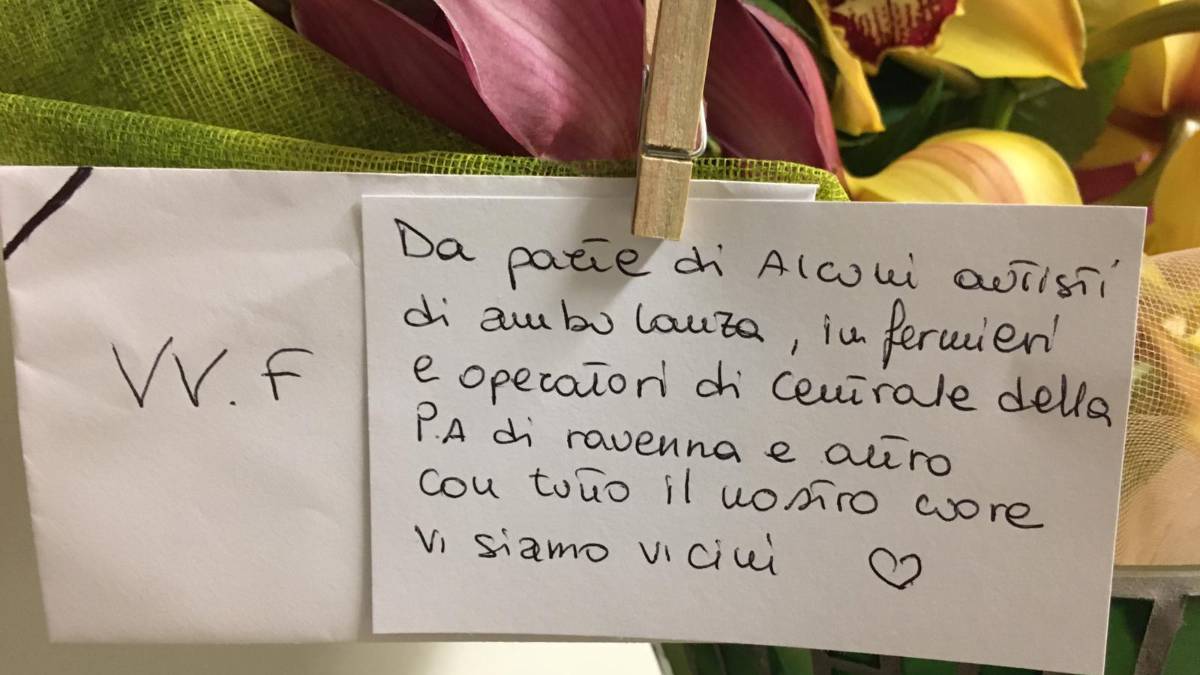 VV. F
Da parte di Alcuni autisti
di ambulanza, infermieri
e operatori di centrale della
P.A di ravenna e altro
con tutto il nostro cuore
vi siamo vicini ♡